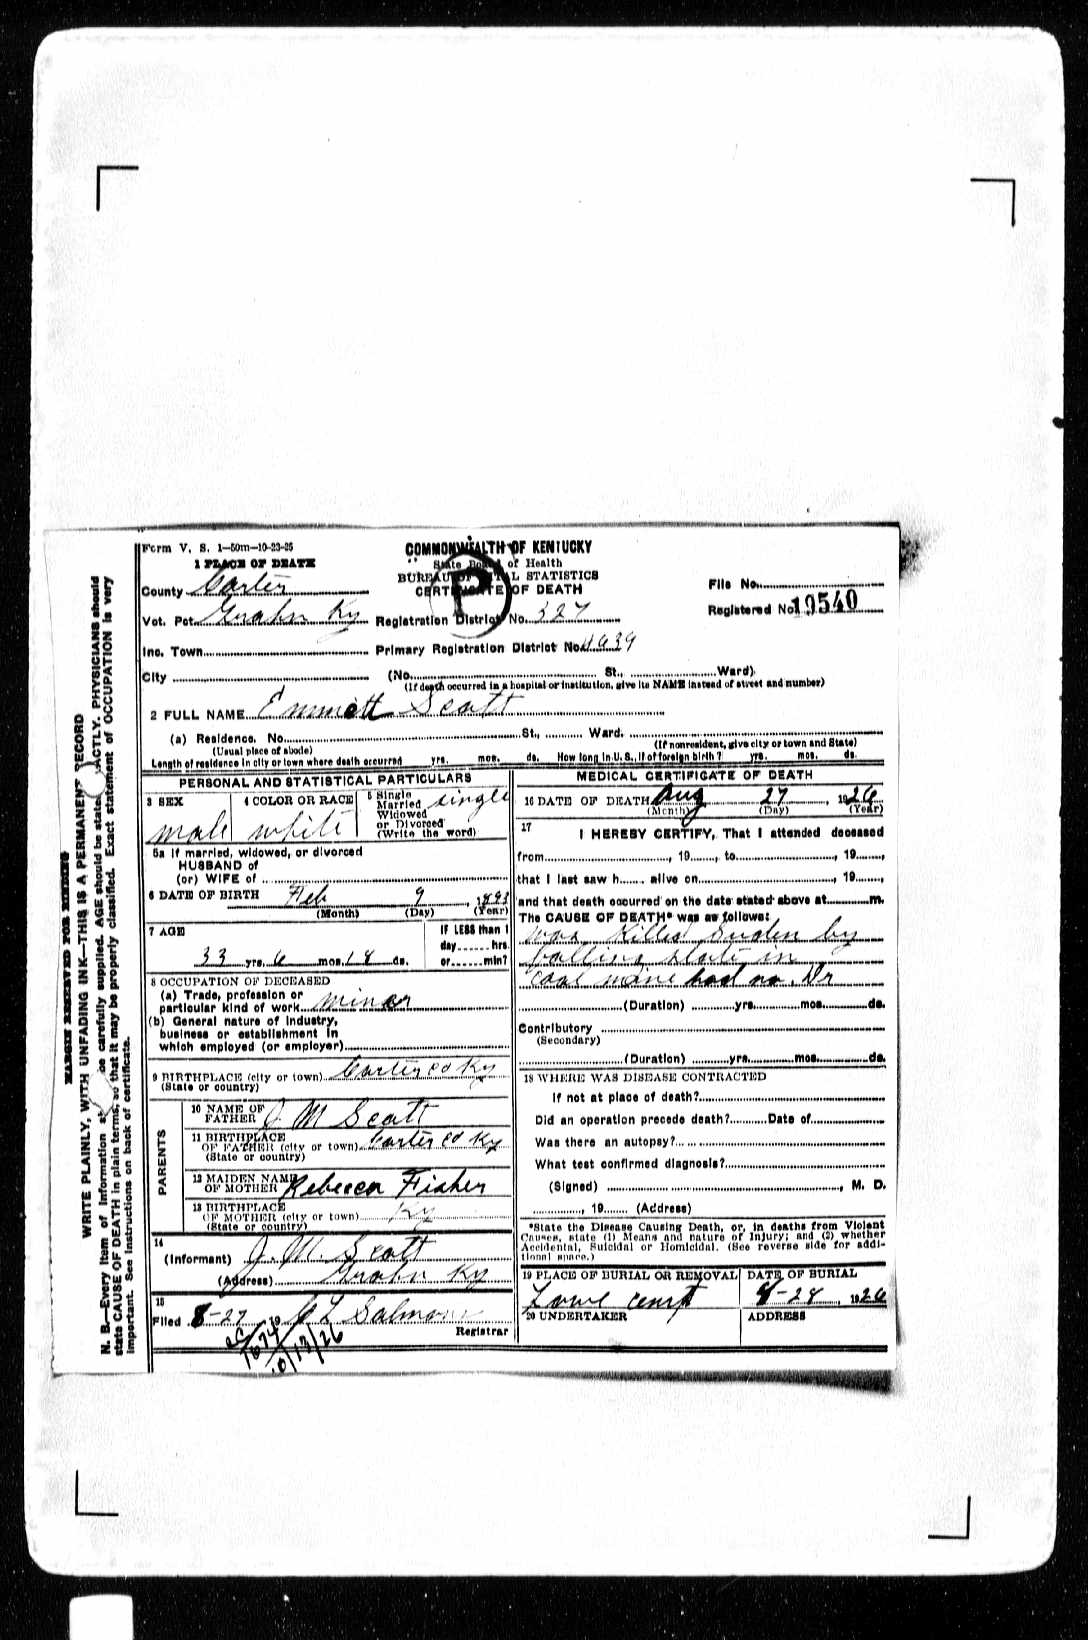 Form V. S. 1—50m—10-23-25
COMMONWEALTH OF KENTUCKY
State Board of Health
BUREAU OF VITAL STATISTICS
CERTIFICATE OF DEATH
P
1 PLACE OF DEATH
County Carter
Vot. Pct. Grahn Ky
Inc. Town
City
Registration District No. 327
Primary Registration District No. 4639
File No.
Registered No. 19540
(No. St., Ward)
(If death occurred in a hospital or institution, give its NAME instead of street and number)
2 FULL NAME Emmett Scott
(a) Residence. No. St., Ward.
(Usual place of abode) (If nonresident, give city or town and State)
Length of residence in city or town where death occurred yrs. mos. ds. How long in U. S., if of foreign birth? yrs. mos. ds.
PERSONAL AND STATISTICAL PARTICULARS
3 SEX male
4 COLOR OR RACE white
5 Single
Married
Widowed
or Divorced
(Write the word) single
5a If married, widowed, or divorced
HUSBAND of
(or) WIFE of
6 DATE OF BIRTH Feb 9, 1893
(Month) (Day) (Year)
7 AGE
33 yrs. 6 mos. 18 ds.
IF LESS than 1
day hrs.
or min?
8 OCCUPATION OF DECEASED
(a) Trade, profession or
particular kind of work miner
(b) General nature of Industry,
business or establishment in
which employed (or employer)
9 BIRTHPLACE (city or town) Carter co Ky
(State or country)
PARENTS
10 NAME OF
FATHER J M Scott
11 BIRTHPLACE
OF FATHER (city or town) Carter co Ky
(State or country)
12 MAIDEN NAME
OF MOTHER Rebecca Fisher
13 BIRTHPLACE
OF MOTHER (city or town) Ky
(State or country)
14
(Informant) J. M. Scott
(Address) Grahn Ky
15
Filed 8-27 19 C L Salmons
Registrar
1674
10/13/26
MEDICAL CERTIFICATE OF DEATH
16 DATE OF DEATH Aug 27, 1926
(Month) (Day) (Year)
17
I HEREBY CERTIFY, That I attended deceased
from , 19 , to , 19 ,
that I last saw h alive on , 19 ,
and that death occurred on the date stated above at m.
The CAUSE OF DEATH* was as follows:
was Killed Suden by
falling slate in
coal mine had no Dr
(Duration) yrs. mos. ds.
Contributory
(Secondary)
(Duration) yrs. mos. ds.
18 WHERE WAS DISEASE CONTRACTED
If not at place of death?
Did an operation precede death? Date of
Was there an autopsy?
What test confirmed diagnosis?
(Signed) , M. D.
, 19 (Address)
*State the Disease Causing Death, or, in deaths from Violent
Causes, state (1) Means and nature of Injury; and (2) whether
Accidental, Suicidal or Homicidal. (See reverse side for addi-
tional space.)
19 PLACE OF BURIAL OR REMOVAL
DATE OF BURIAL
8-28, 1926
20 UNDERTAKER
ADDRESS
MARGIN RESERVED FOR BINDING
WRITE PLAINLY, WITH UNFADING INK—THIS IS A PERMANENT RECORD
N. B.—Every item of information should be carefully supplied. AGE should be stated EXACTLY. PHYSICIANS should
state CAUSE OF DEATH in plain terms, so that it may be properly classified. Exact statement of OCCUPATION is very
important. See instructions on back of certificate.